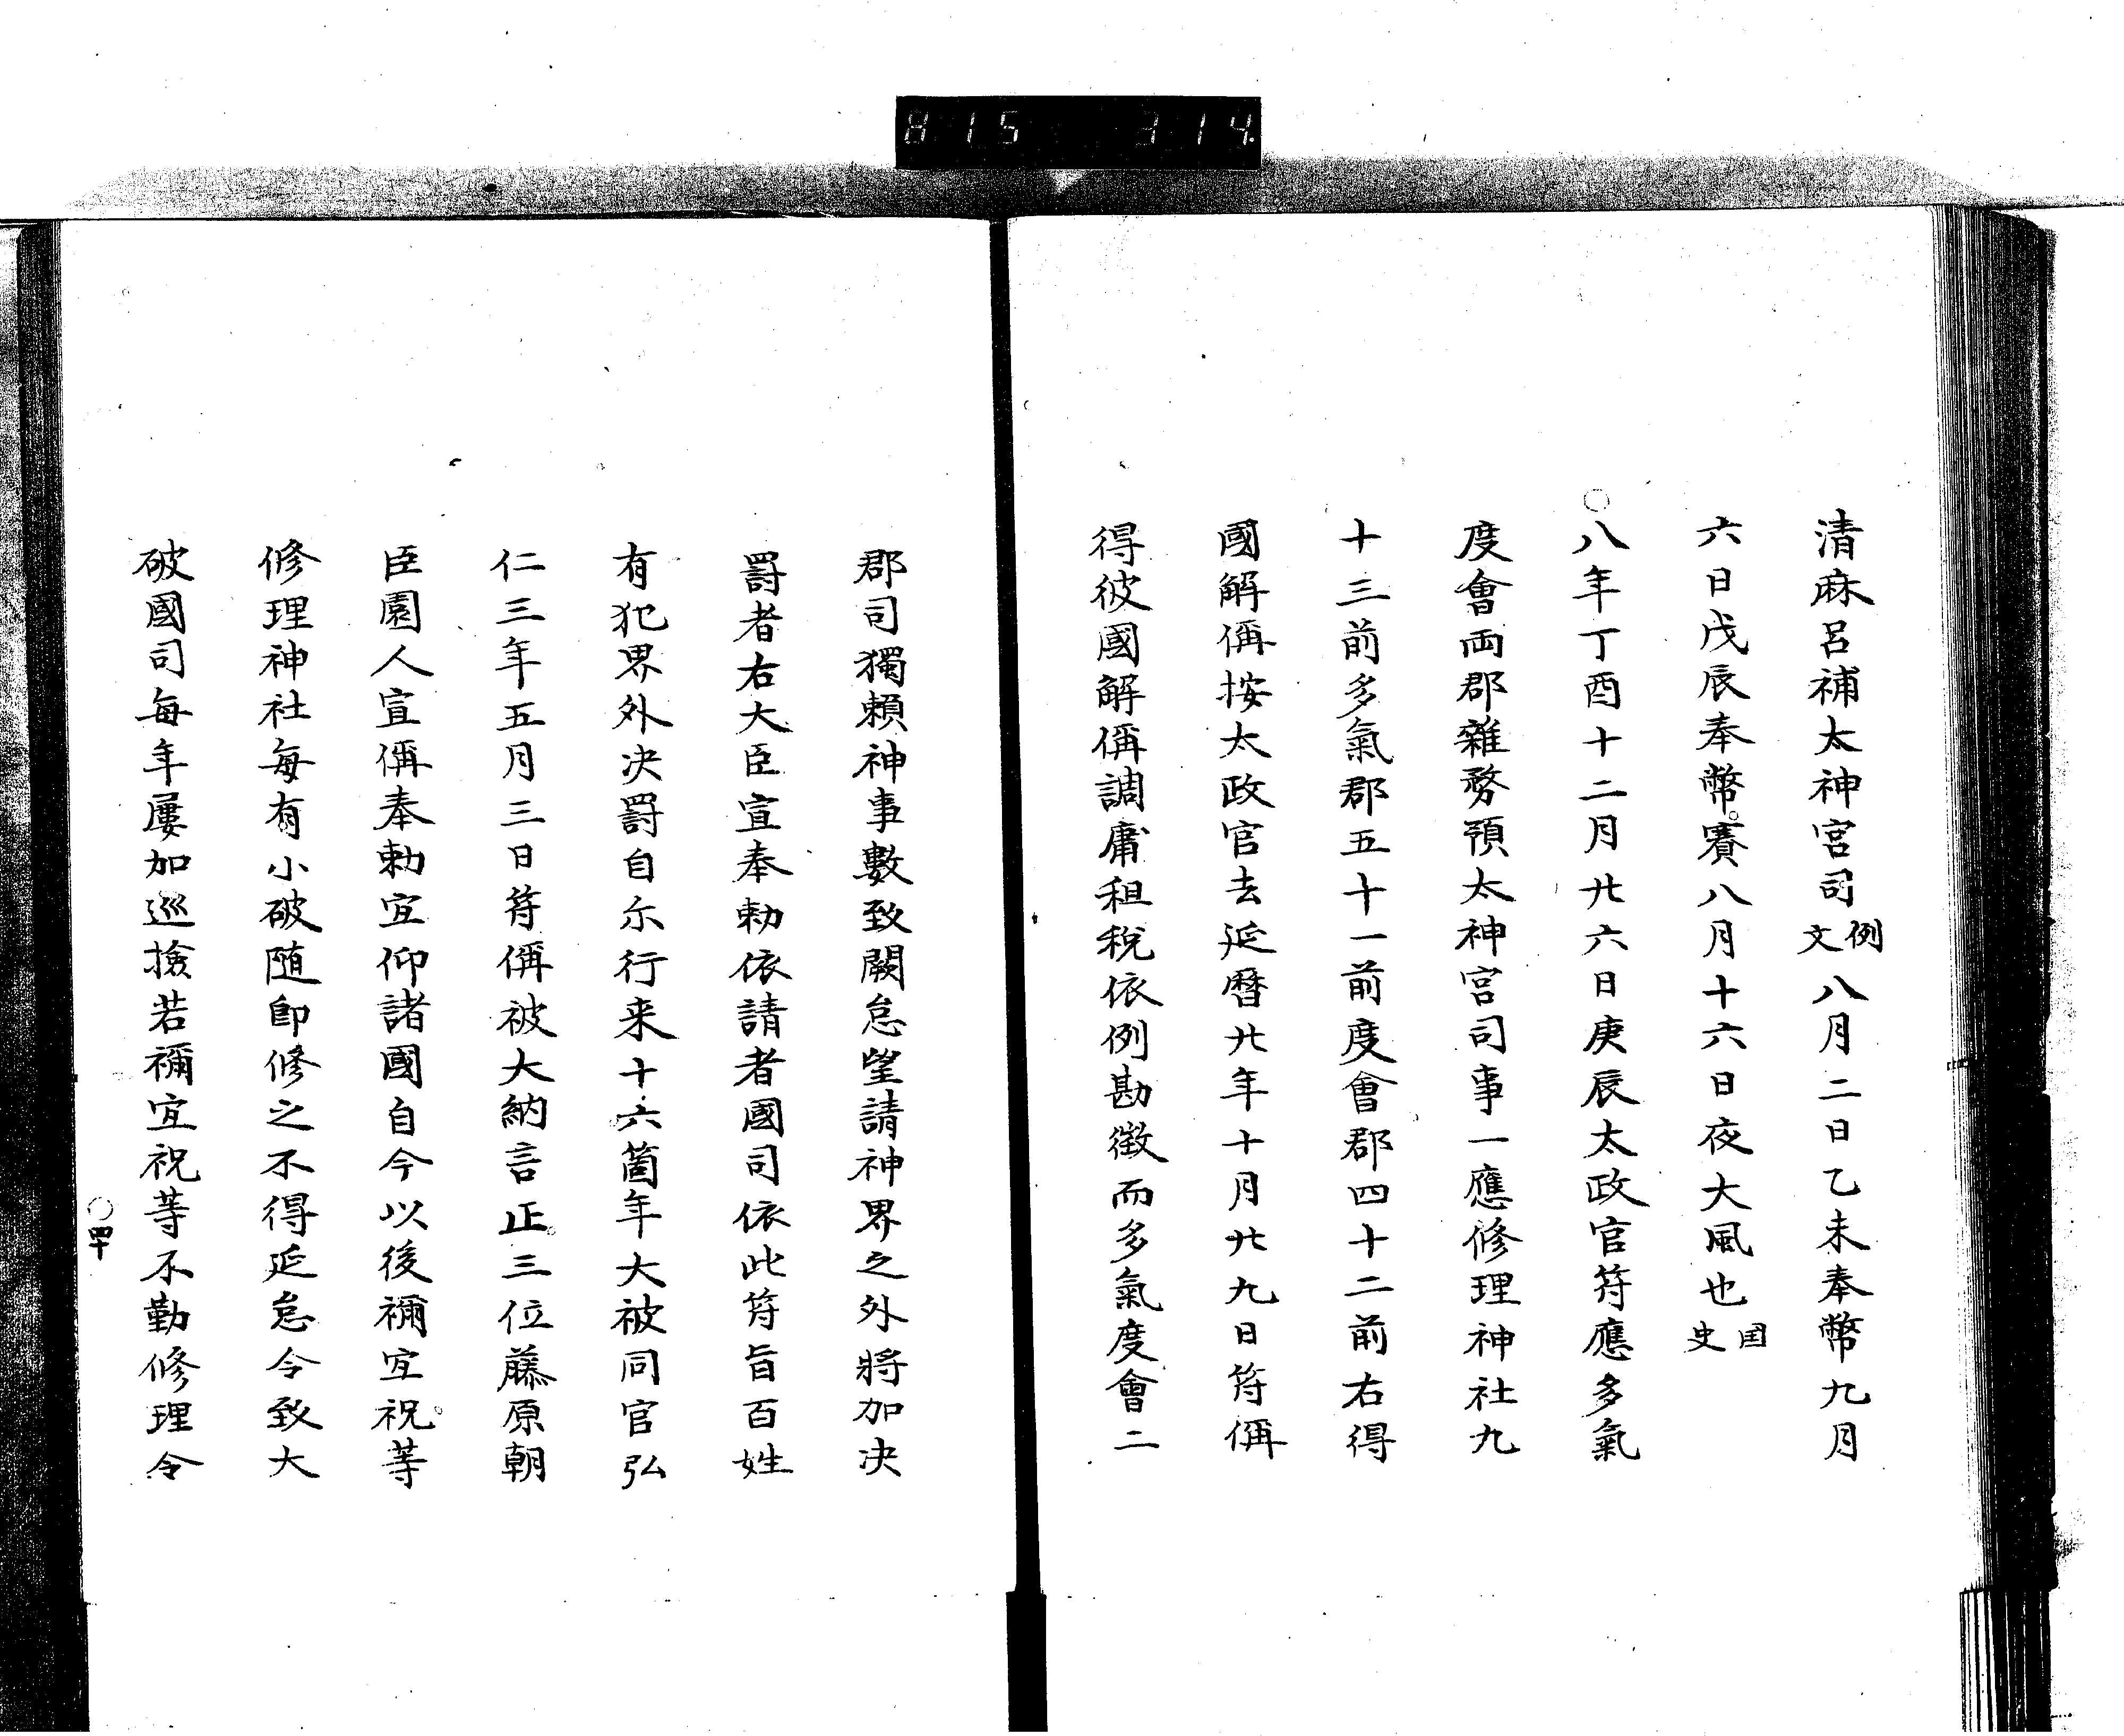 清麻呂補太神宮司例文八月二日乙未奉幣九月
六日戊辰奉幣賽八月十六日夜大風也国史
○八年丁酉十二月廿六日庚辰太政官符應多氣
度會両郡雜務預太神宮司事一應修理神社九
十三前多氣郡五十一前度會郡四十二前右得
國解偁按太政官去延暦廿年十月廿九日符偁
得彼國解偁調庸租税依例勘徴而多氣度會二
郡司獨頼神事數致闕怠望請神界之外將加決
罸者右大臣宣奉勅依請者國司依此符旨百姓
有犯界外決罸自尓行来十六箇年大被同官弘
仁三年五月三日符偁被大納言正三位藤原朝
臣園人宣偁奉勅宜仰諸國自今以後禰宜祝等
修理神社毎有小破随即修之不得延怠令致大
破國司毎年屢加巡撿若禰宜祝等不勤修理令
○四十
815 314